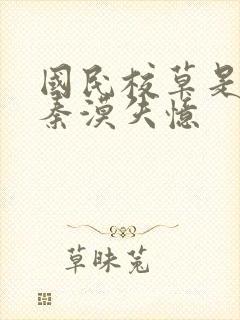 國民校草是
秦漠失憶
草昧蒐